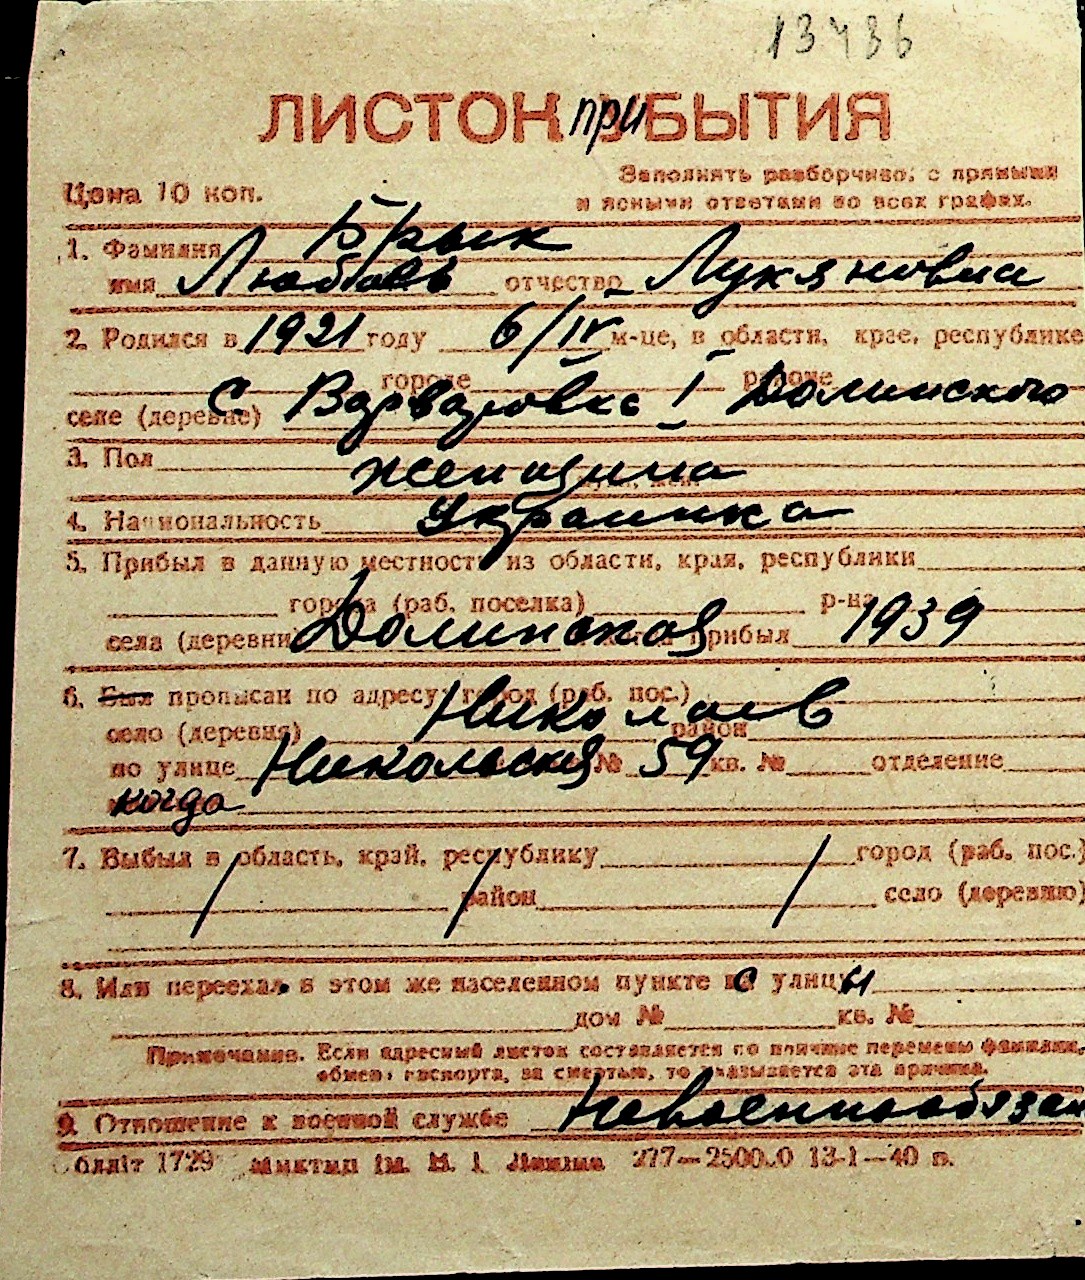 13436
ЛИСТОК при БЫТИЯ
Цена 10 коп.
Заполнять разборчиво, с прямыми
и ясными ответами во всех графах.
1. Фамилия Брык
имя Любовь отчество Лукяновна
2. Родился в 1921 году 6/IV м-це, в области, крае, республике
городе районе
селе (деревне) С. Варваровка Долинского
3. Пол женщина
4. Национальность Украинка
5. Прибыл в данную местность из области, края, республики
города (раб. поселка) р-на
села (деревни) Долинская прибыл 1939
6. Был прописан по адресу: город (раб. пос.)
село (деревня) Николаев район
по улице Никольская № 59 кв. № отделение
когда
7. Выбыл в область, край, республику город (раб. пос.)
район село (деревню)
8. Или переехал в этом же населенном пункте с улицы
дом № кв. №
Примечание. Если адресный листок составляется по причине перемены фамилии,
обмена паспорта, за смертью, то указывается эта причина.
9. Отношение к военной службе Невоеннообязан
блліт 1729 ім. В. І. Леніна 277—250000 13-1—40 п.